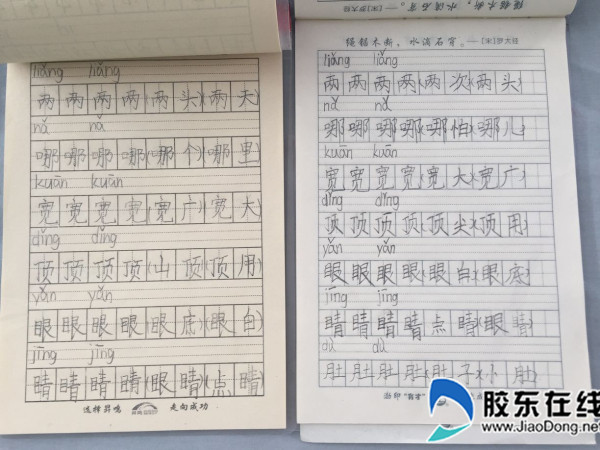 liǎng liǎng
两两两两(两头)(两天)
nǎ nǎ
哪哪哪哪(哪个)(哪里)
kuān kuān
宽宽宽宽(宽广)(宽大)
dǐng dǐng
顶顶顶顶(山顶)(顶用)
yǎn yǎn
眼眼眼眼(眼底)(眼白)
jīng jīng
睛睛睛睛(眼睛)(点睛)
选择昇鸣 走向成功
绳锯木断，水滴石穿。——[宋]罗大经
liǎng liǎng
两两两两(两次)(两头)
nǎ nǎ
哪哪哪哪(哪怕)(哪儿)
kuān kuān
宽宽宽宽(宽大)(宽广)
dǐng dǐng
顶顶顶顶(顶尖)(顶用)
yǎn yǎn
眼眼眼眼(眼白)(眼底)
jīng jīng
睛睛睛睛(点睛)(眼睛)
dù dù
肚肚肚肚(肚子)(小肚)
胶东在线
www.JiaoDong.net